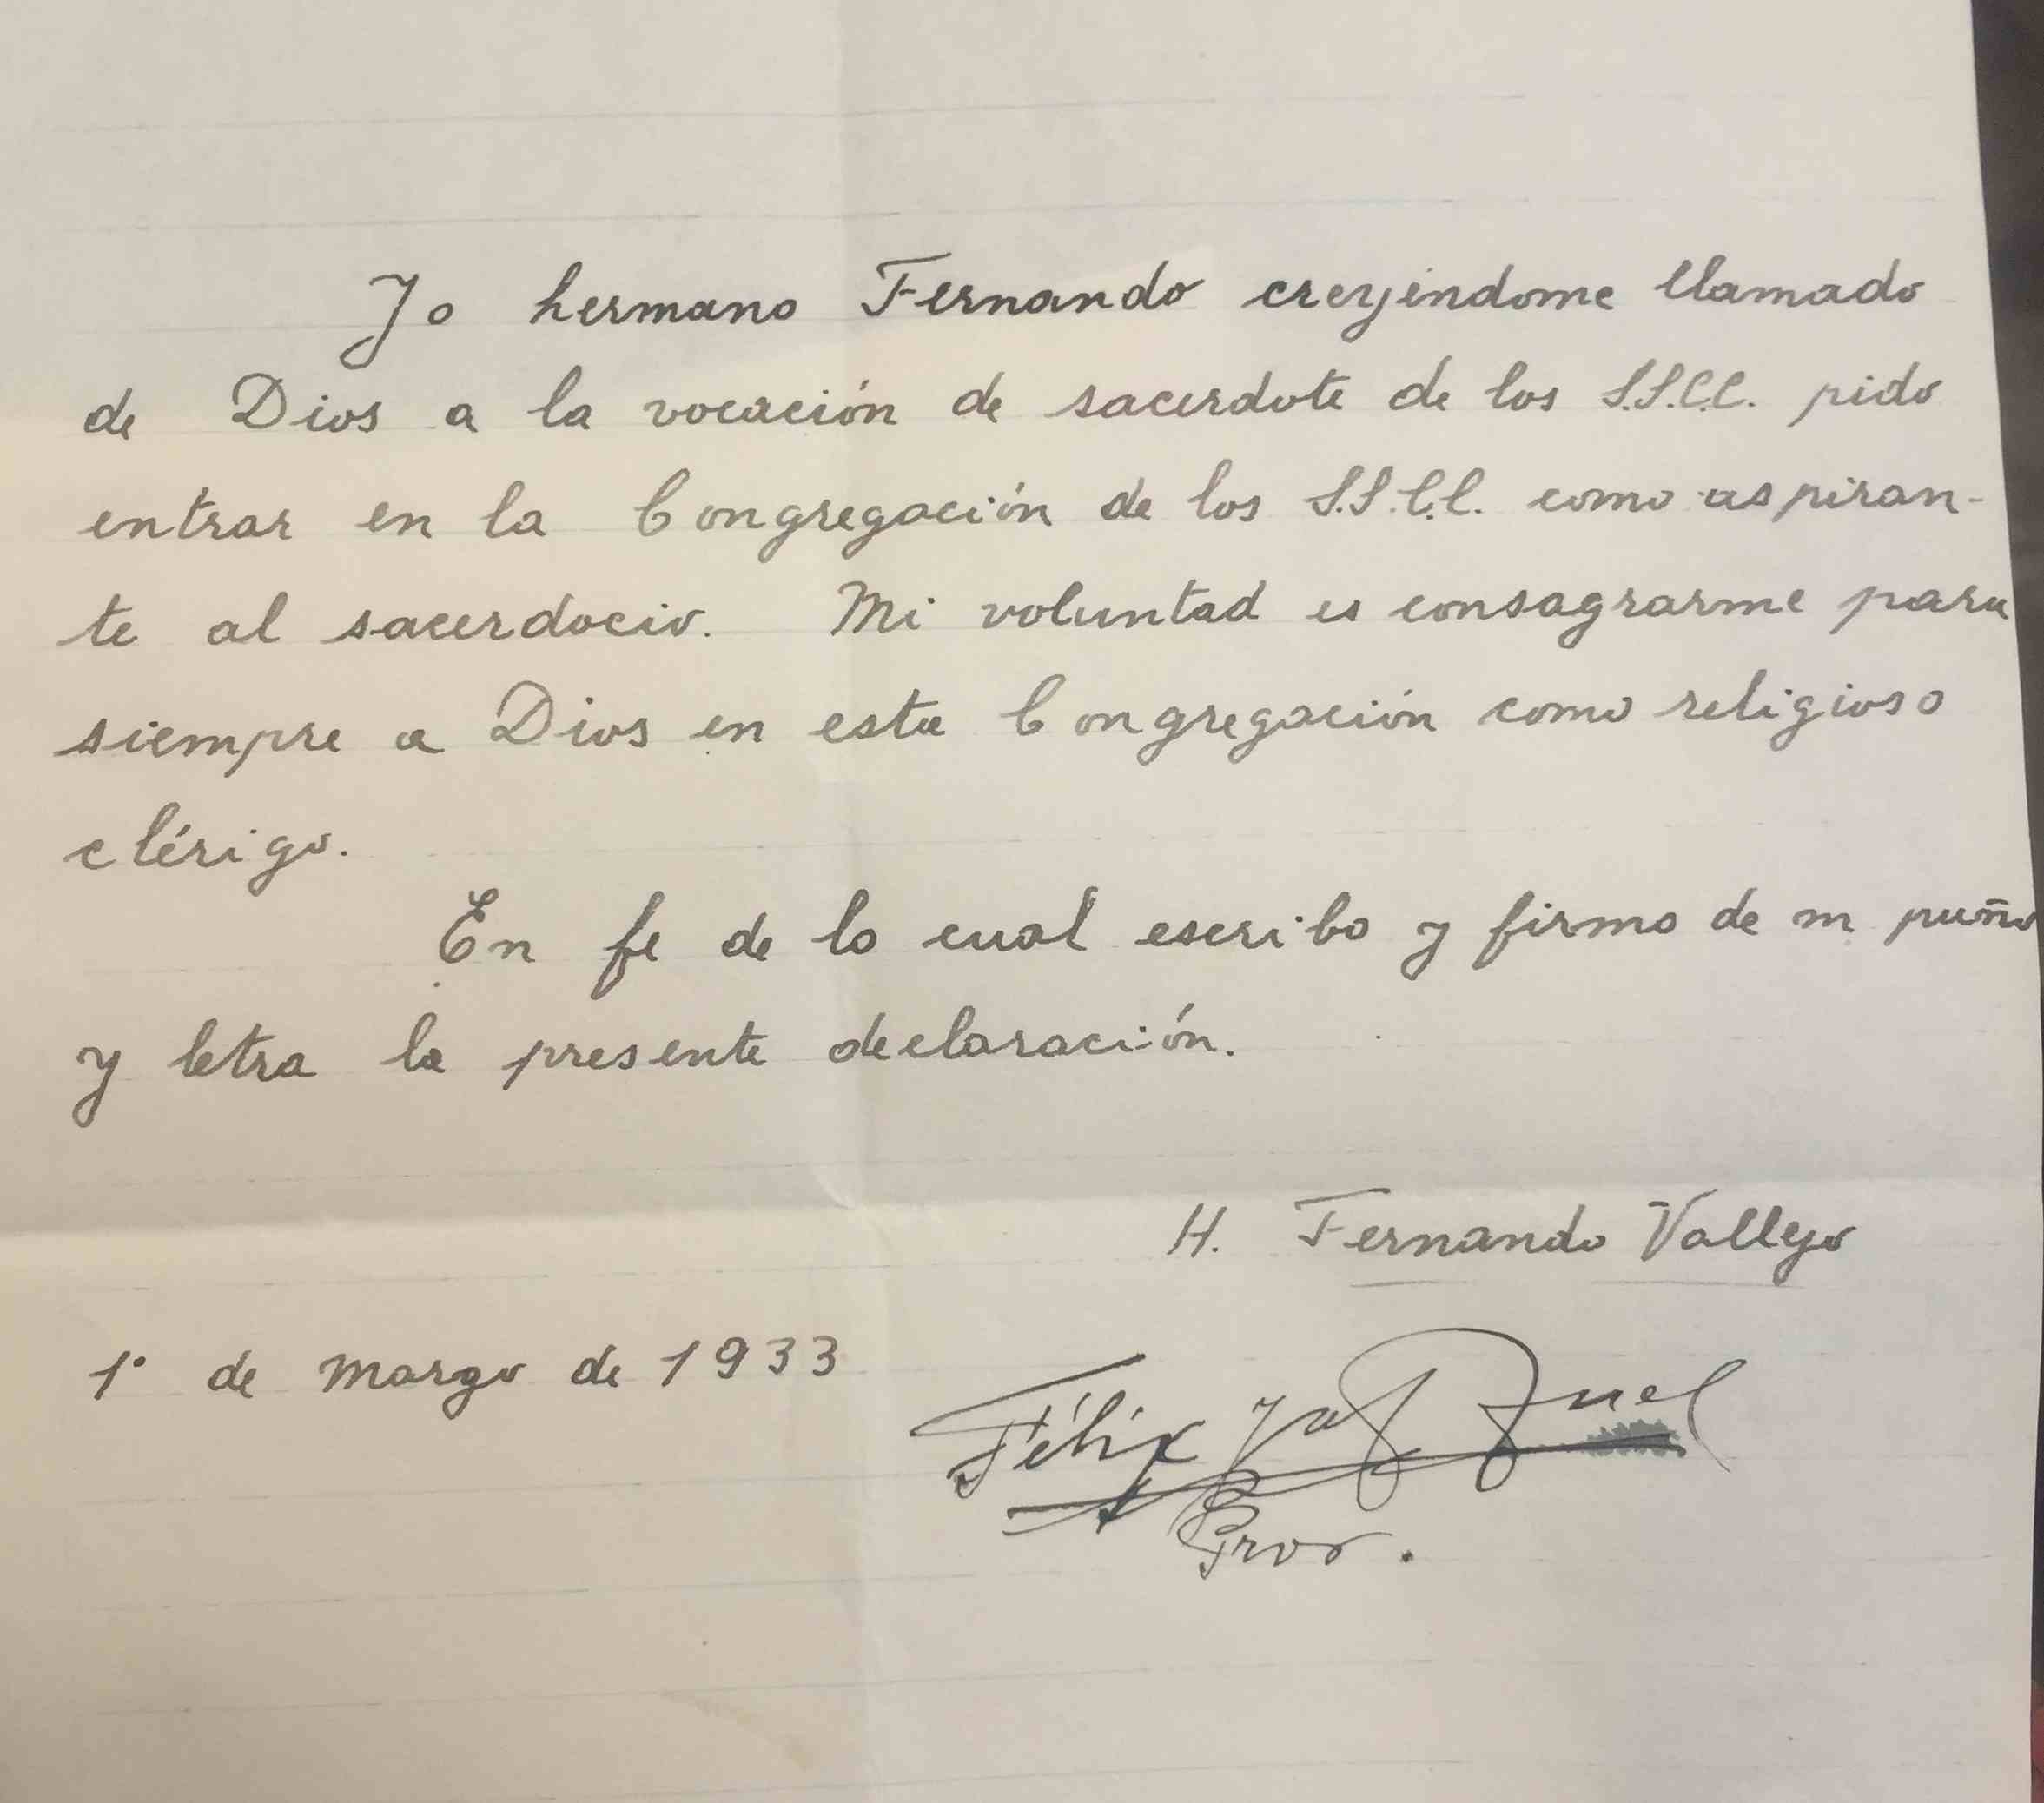 Yo hermano Fernando creyéndome llamado
de Dios a la vocación de sacerdote de los S.S.C.C. pido
entrar en la Congregación de los S.S.C.C. como aspiran-
te al sacerdocio. Mi voluntad es consagrarme para
siempre a Dios en esta Congregación como religioso
clérigo.
En fe de lo cual escribo y firmo de m puño
y letra la presente declaración.
H. Fernando Vallejo
1º de Marzo de 1933
Félix
Prov.